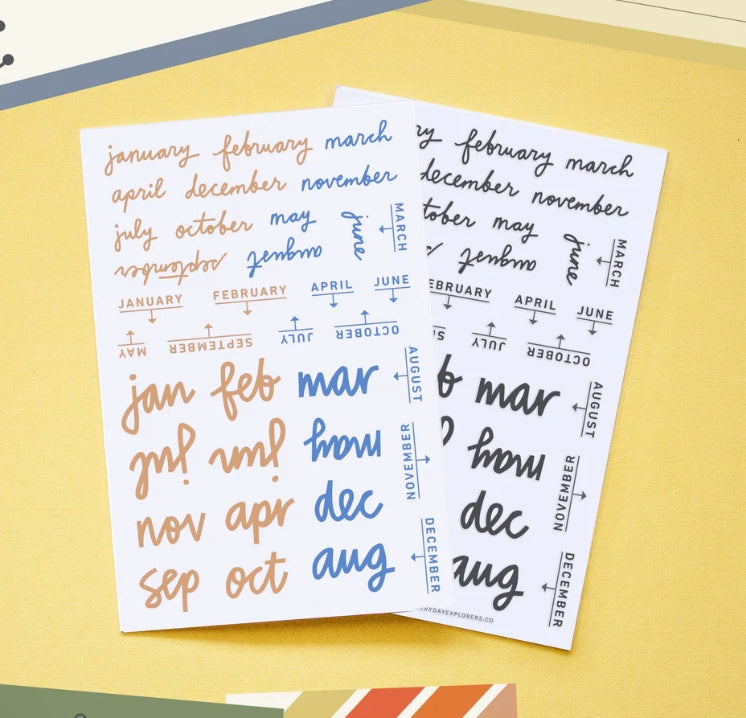 january february march
april december november
july october may
june
MARCH
september august
JANUARY FEBRUARY APRIL JUNE
MAY SEPTEMBER JULY OCTOBER
jan feb mar
AUGUST
jul jun may
NOVEMBER
nov apr dec
sep oct aug
DECEMBER
ry february march
december november
tober may
june
MARCH
august
EBRUARY APRIL JUNE
JULY OCTOBER
b mar
AUGUST
may
NOVEMBER
dec
aug
DECEMBER
YDAYEXPLORERS.CO